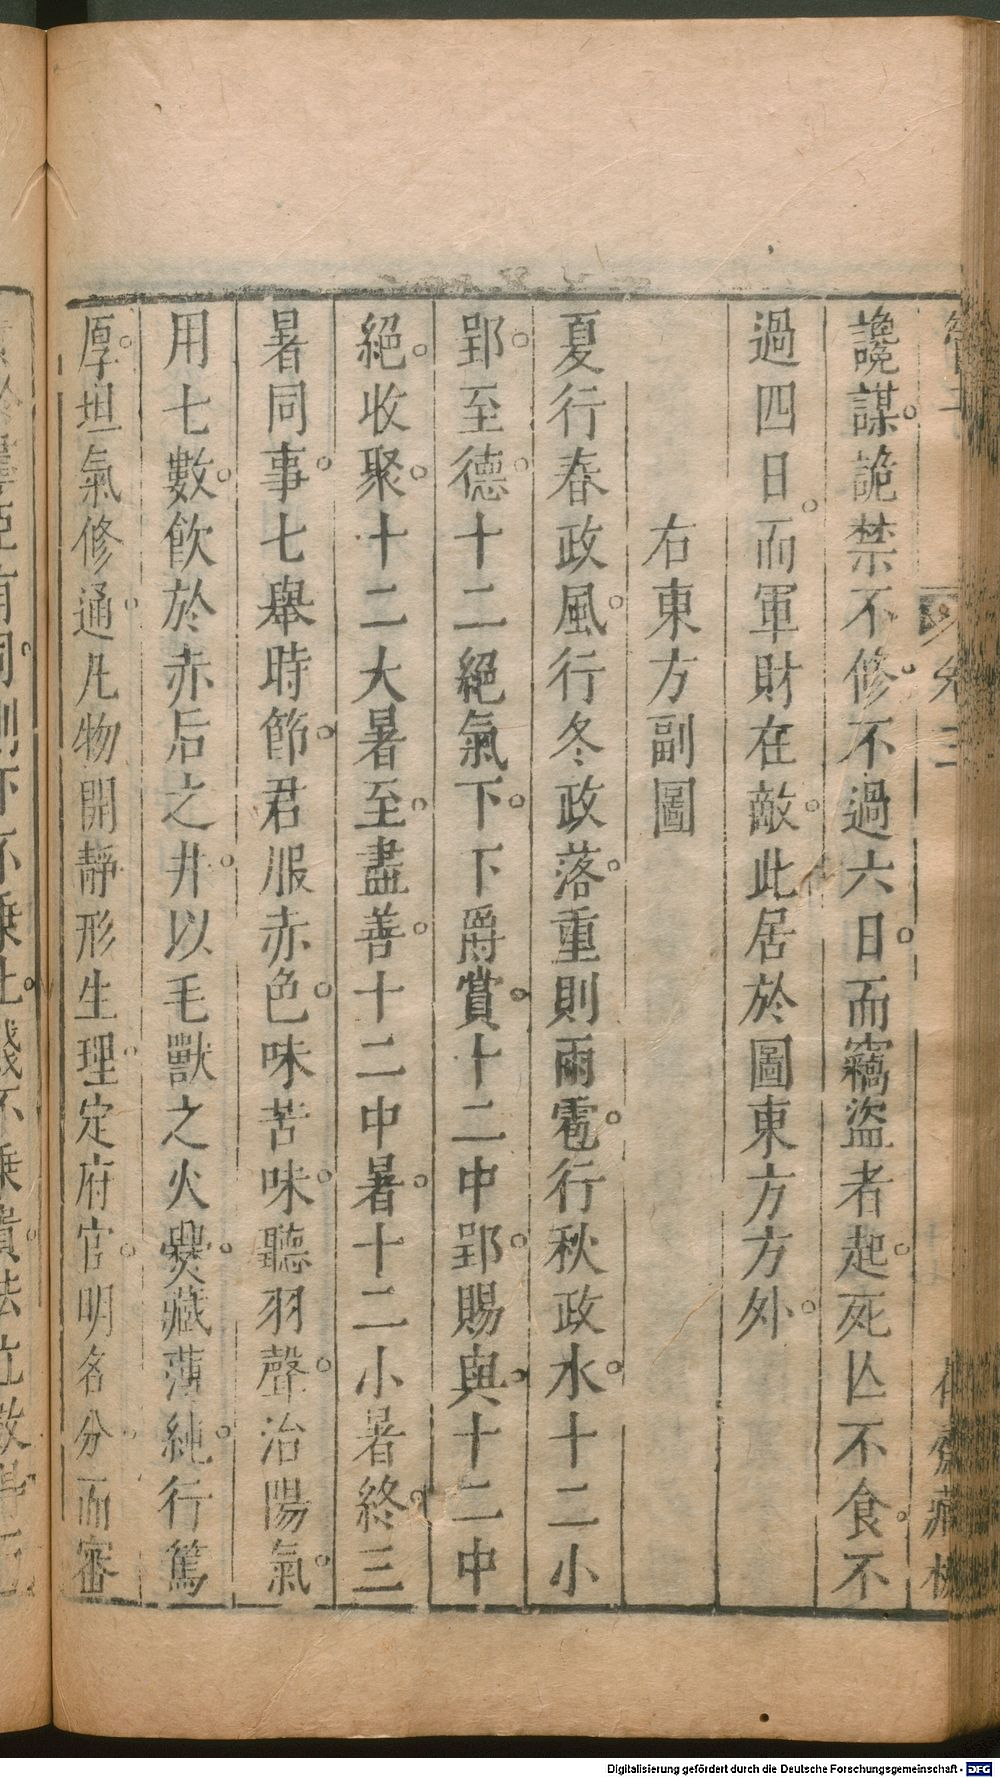 讒謀。詭禁不修。不過六日。而竊盜者起。死亾不食。不
過四日。而軍財在敵。此居於圖東方方外。
右東方副圖
夏行春政風。行冬政落。重則雨雹。行秋政水。十二小
郢。至德。十二絕氣下。下爵賞。十二中郢。賜與。十二中
絕。收聚。十二大暑至。盡善。十二中暑。十二小暑終。三
暑同事。七舉時節。君服赤色。味苦味。聽羽聲。治陽氣。
用七數。飲於赤后之井。以毛獸之火爨。藏薄純。行篤
厚。坦氣修通。凡物開靜形生理。定府官。明名分。而審
卷三
齋藏板
Digitalisierung gefördert durch die Deutsche Forschungsgemeinschaft - DFG